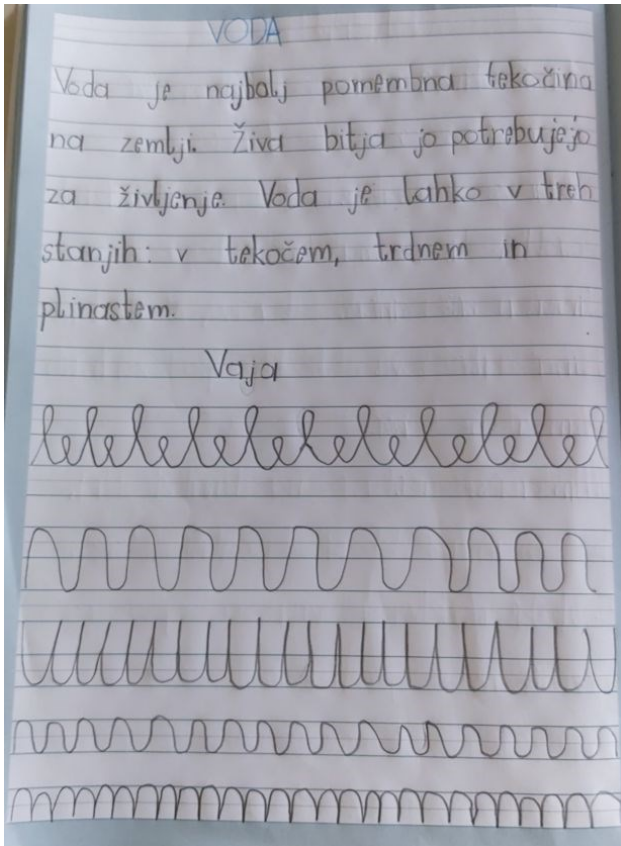 VODA
Voda je najbolj pomembna tekočina
na zemlji. Živa bitja jo potrebujejo
za življenje. Voda je lahko v treh
stanjih: v tekočem, trdnem in
plinastem.
Vaja